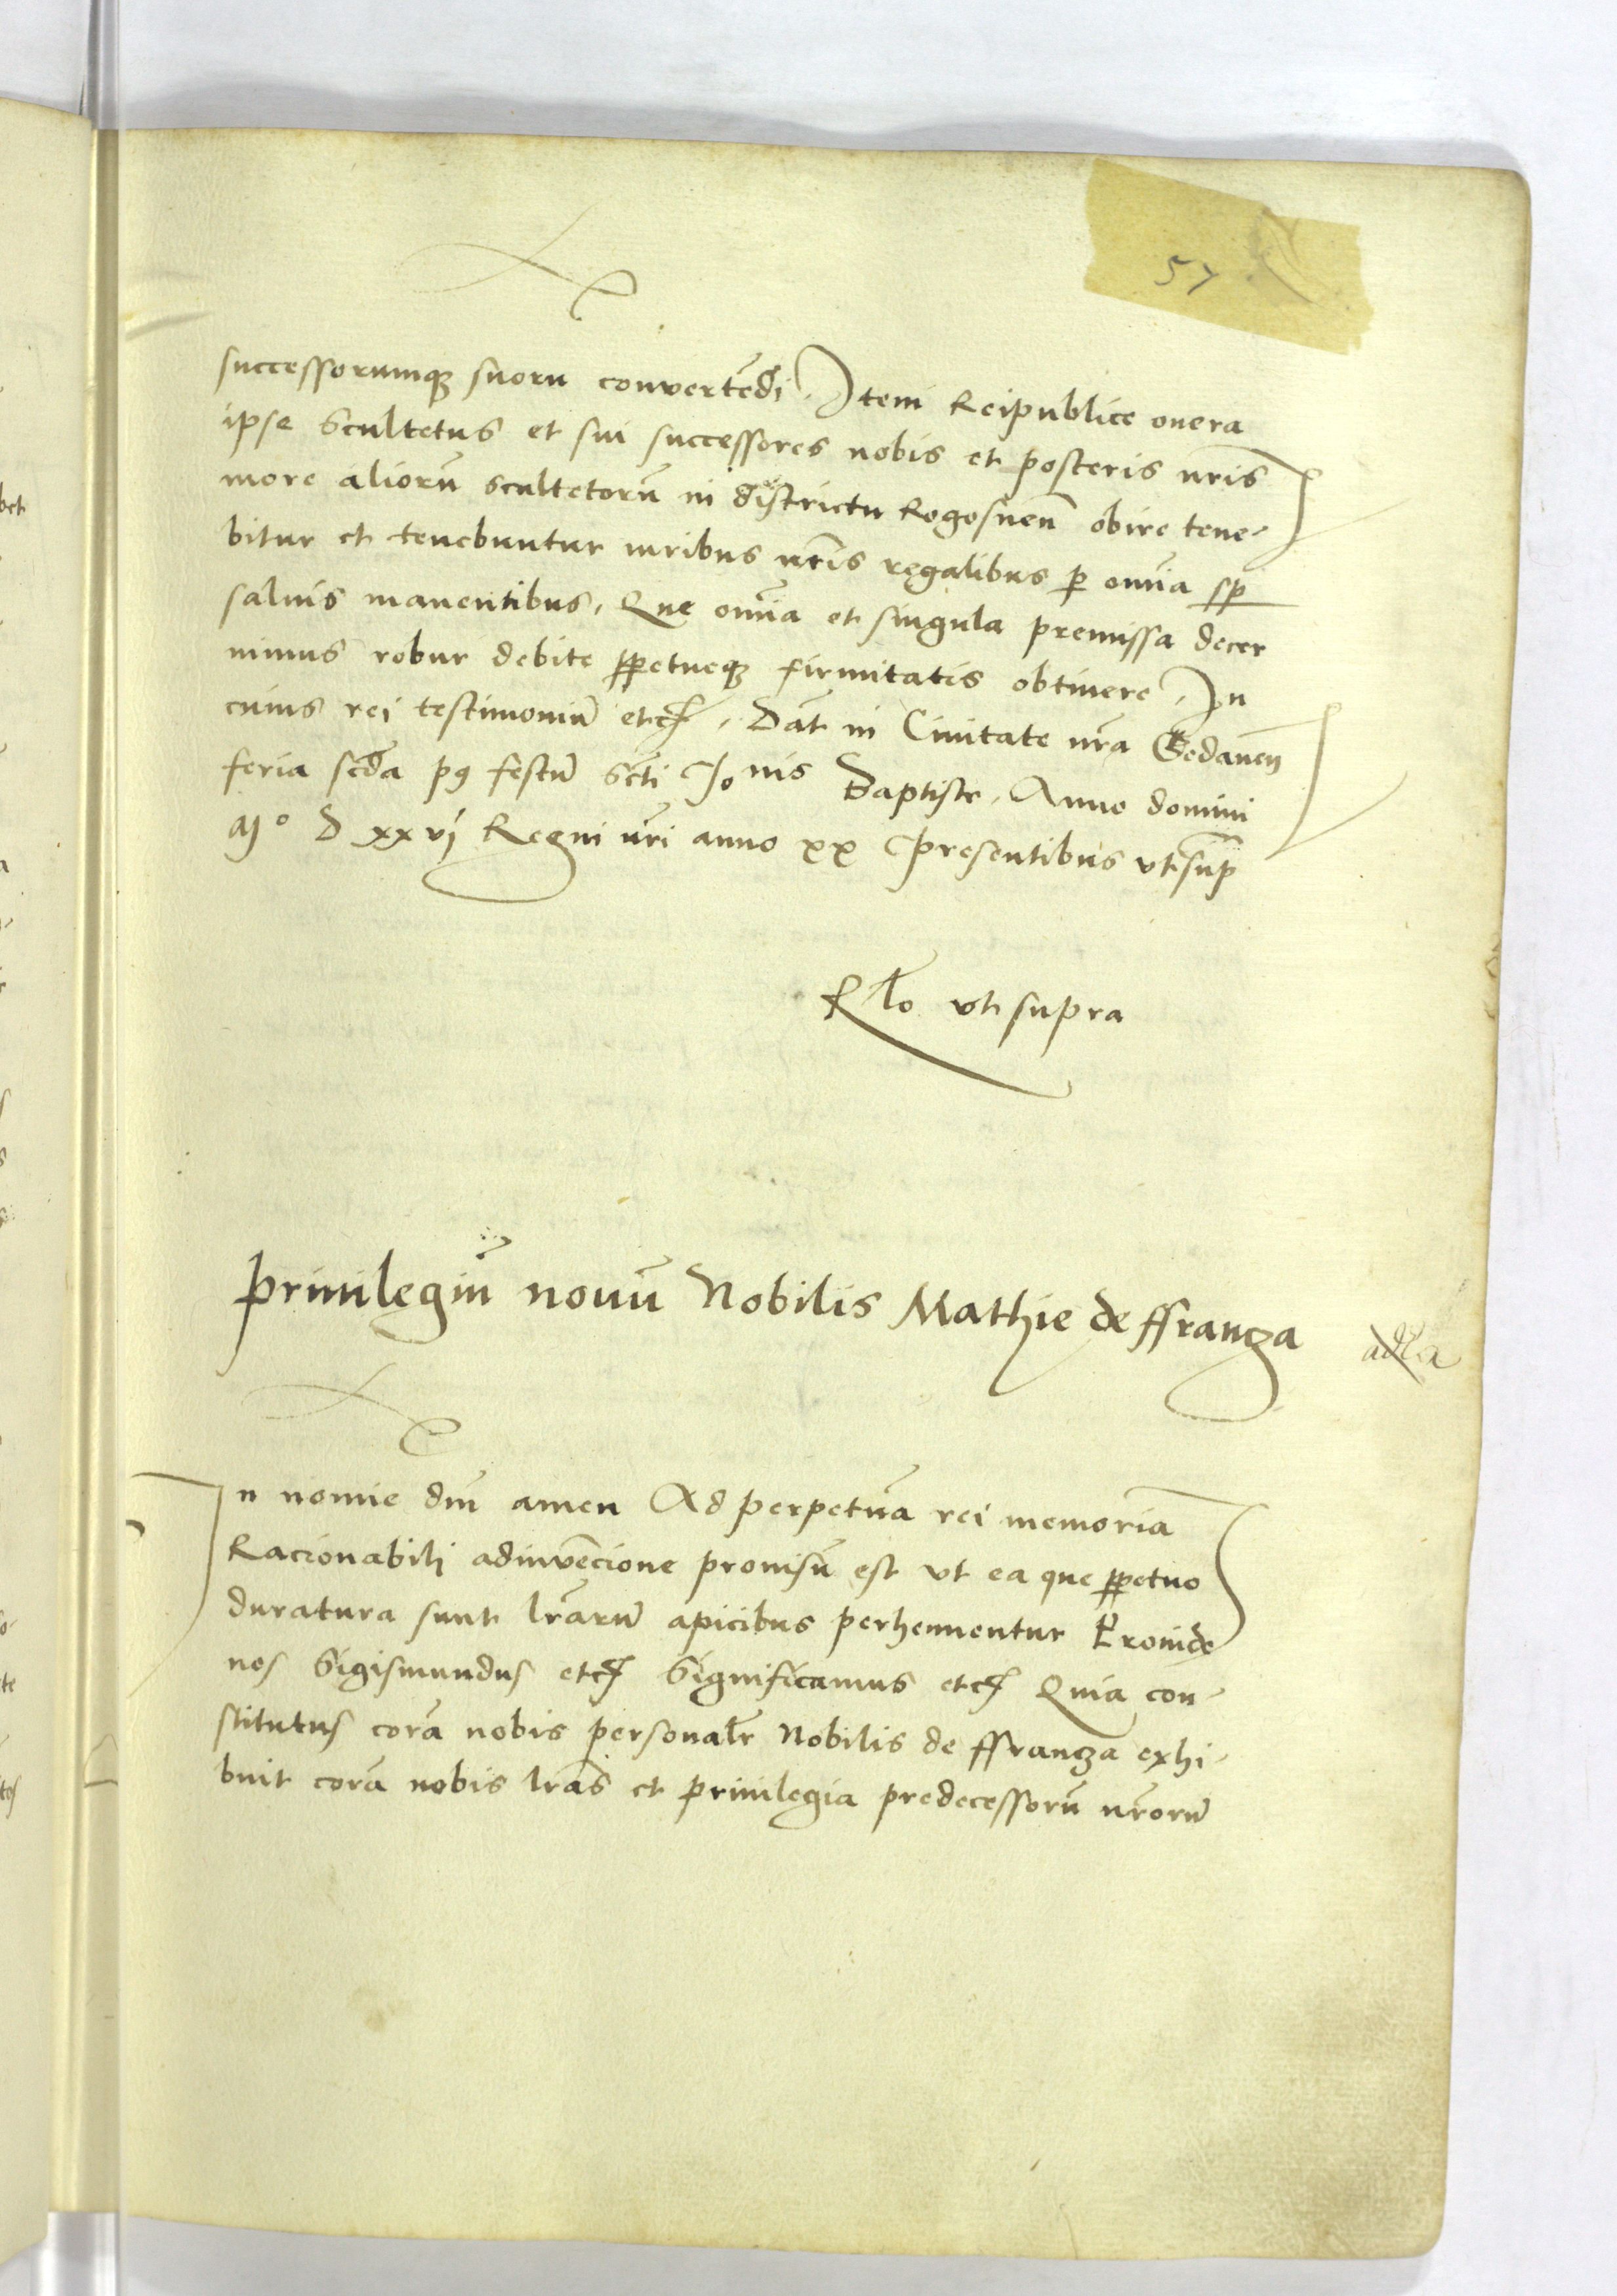 57
successorumq̃ suoru convertẽdi. Item Reipublice onera
ipse Scultetus et sui successores nobis et posteris nr̃is
more aliorũ scultetorũ in districtu Rogosneñ obire tene-
bitur et tenebuntur iuribus nr̃is regalibus ꝑ omĩa sp̃
saluis manentibus. Que omĩa et singula premissa decer
nimus robur debite ꝑpetueq̃ firmitatis obtinere. In
cuius rei testimoniũ etc̃. Dat̃ in Ciuitate nr̃a Gedaneñ
feria sc̃da pꝯ festũ Sc̃ti Jo nis Baptiste. Anno domini
Mº D xxvj Regni nr̃i anno xx Presentibus vt sup̃
Rl̃o vt supra
Priuilegiũ nouũ Nobilis Mathie de ffranza
In nomĩe dñi amen Ad perpetuã rei memoriã
Racionabili adinvẽcione prouisũ est vt ea que ꝑpetuo
duratura sunt lr̃arũ apicibus perhennentur Proinde
nos Sigismundus etc̃ Significamus etc̃ Quia con-
stitutus corã nobis personalr̃ Nobilis de ffranza exhi-
buit corã nobis lr̃as et priuilegia predecessorũ nr̃orũ